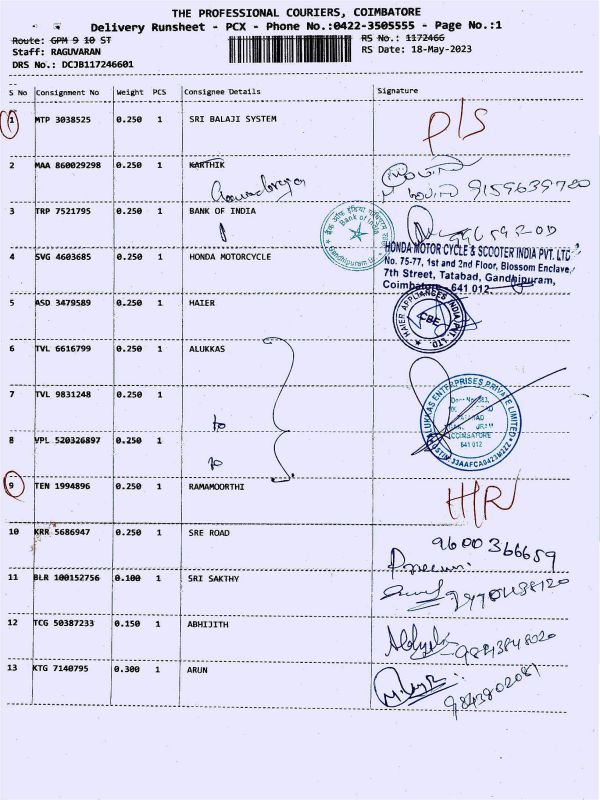 THE PROFESSIONAL COURIERS, COIMBATORE
Delivery Runsheet - PCX - Phone No.:0422-3505555 - Page No.:1
Route: GPM 9 10 ST
RS No.: 1172466
Staff: RAGUVARAN
RS Date: 18-May-2023
DRS No.: DCJB117246601
S No Consignment No Weight PCS Consignee Details Signature
1 MTP 3038525 0.250 1 SRI BALAJI SYSTEM P/S
2 MAA 860029298 0.250 1 KARTHIK
9159639720
3 TRP 7521795 0.250 1 BANK OF INDIA
Bank of India
Gandhipuram Br.
4 SVG 4603685 0.250 1 HONDA MOTORCYCLE
HONDA MOTOR CYCLE & SCOOTER INDIA PVT. LTD
No. 75-77, 1st and 2nd Floor, Blossom Enclave,
7th Street, Tatabad, Gandhipuram,
Coimbatore - 641 012
5 ASD 3479589 0.250 1 HAIER
HAIER APPLIANCES INDIA PVT. LTD.
CBE
6 TVL 6616799 0.250 1 ALUKKAS
7 TVL 9831248 0.250 1
to
8 VPL 520326897 0.250 1
to
ALUKKAS ENTERPRISES PRIVATE LIMITED
COIMBATORE
641 012
GSTIN 33AAFCA0423M2ZZ
9 TEN 1994896 0.250 1 RAMAMOORTHI H/R
10 KRR 5686947 0.250 1 SRE ROAD
9600366659
11 BLR 100152756 0.100 1 SRI SAKTHY
12 TCG 50387233 0.150 1 ABHIJITH
9843848020
13 KTG 7140795 0.300 1 ARUN
9843802081